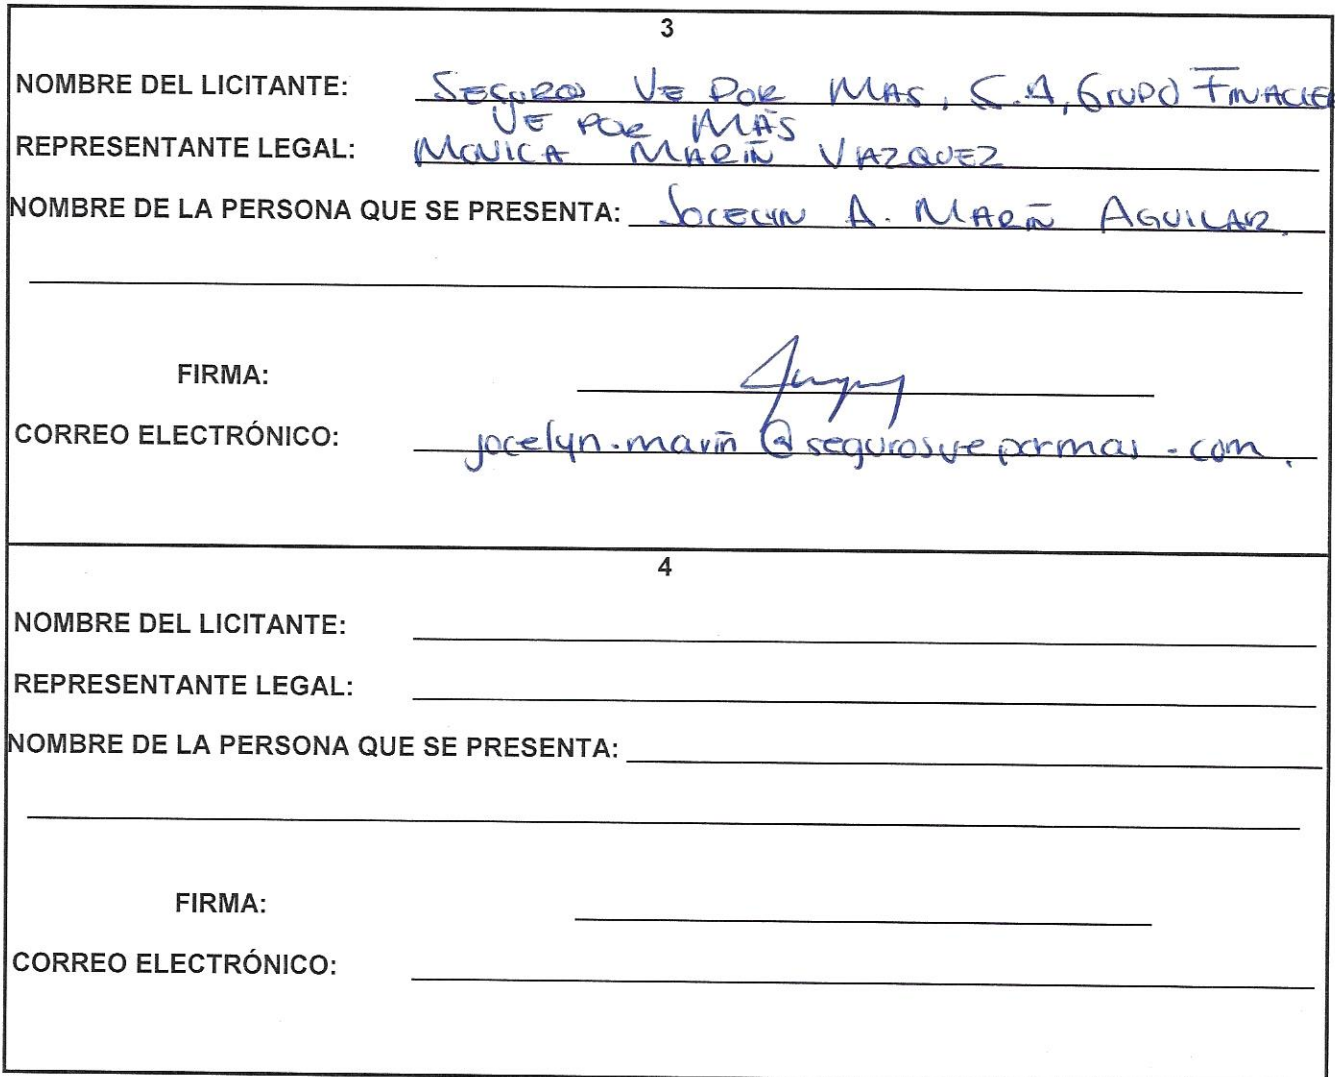 3
NOMBRE DEL LICITANTE: SEGUROS VE POR MAS, S.A, GRUPO FINACIE
VE POR MÁS
REPRESENTANTE LEGAL: MONICA MARIN VAZQUEZ
NOMBRE DE LA PERSONA QUE SE PRESENTA: JOCELYN A. MARIN AGUILAR.
FIRMA:
CORREO ELECTRÓNICO: jocelyn.marin@segurosvepormas.com.
4
NOMBRE DEL LICITANTE:
REPRESENTANTE LEGAL:
NOMBRE DE LA PERSONA QUE SE PRESENTA:
FIRMA:
CORREO ELECTRÓNICO: